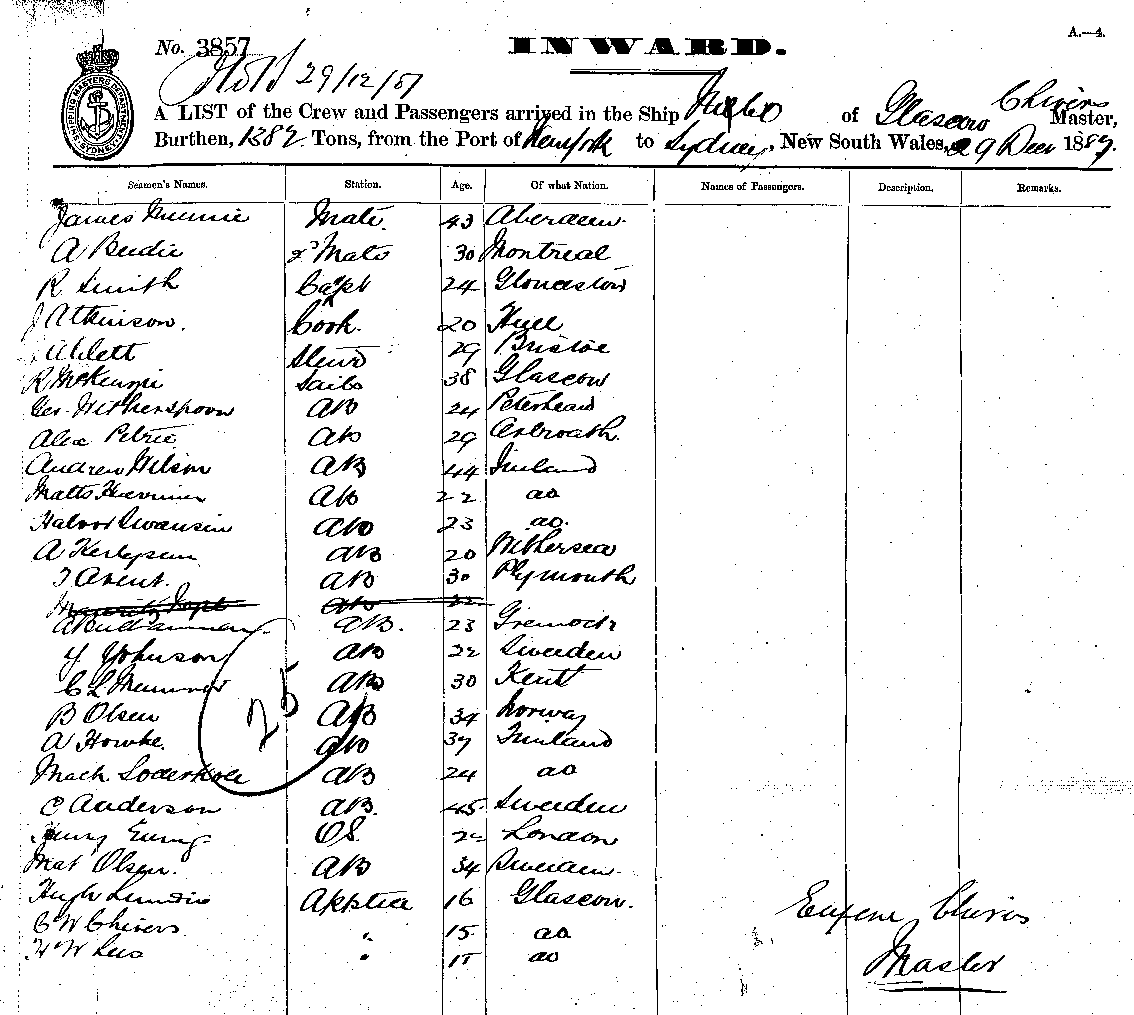 A.—4.
No. 3857
INWARD.
29/12/87
SHIPPING MASTERS DEPARTMENT SYDNEY
A LIST of the Crew and Passengers arrived in the Ship of Glascow Chivers Master,
Burthen, 1382 Tons, from the Port of Newyork to Sydney, New South Wales, 29 Decr 1887.
Seamen's Names. Station. Age. Of what Nation. Names of Passengers. Description. Remarks.
James Mate. 43 Aberdeen.
A 2d Mate 30 Montreal
R Smith 24
J Atkinson. Cook. 20 Hull
Ablett Stewd 29 Bristol
R McKenzie Sails 38 Glascow
Geo. Witherspoon AB 24 Peterhead
Alex Petrie AB 29 Arbroath.
Andrew Wilson AB 44 Finland
Matts AB 22 do
Halvor Swansin AB 23 do.
A AB 20 Withersea
AB 30 Plymouth
AB 22
AB. 23 Greenock
Y Yohnson AB 22 Sweden
C L AB 30 Kent
25
B Olsen AB 34 Norway
A Howke. AB 37 Finland
Mach AB 24 do
C Anderson AB. 45 Sweden
OS. 22 London
Mat Olsen. AB 34 Sweden.
Hugh Lundie Apptice 16 Glascow.
C W Chivers " 15 do
H W " 15 do
Eugene Chivers
Master